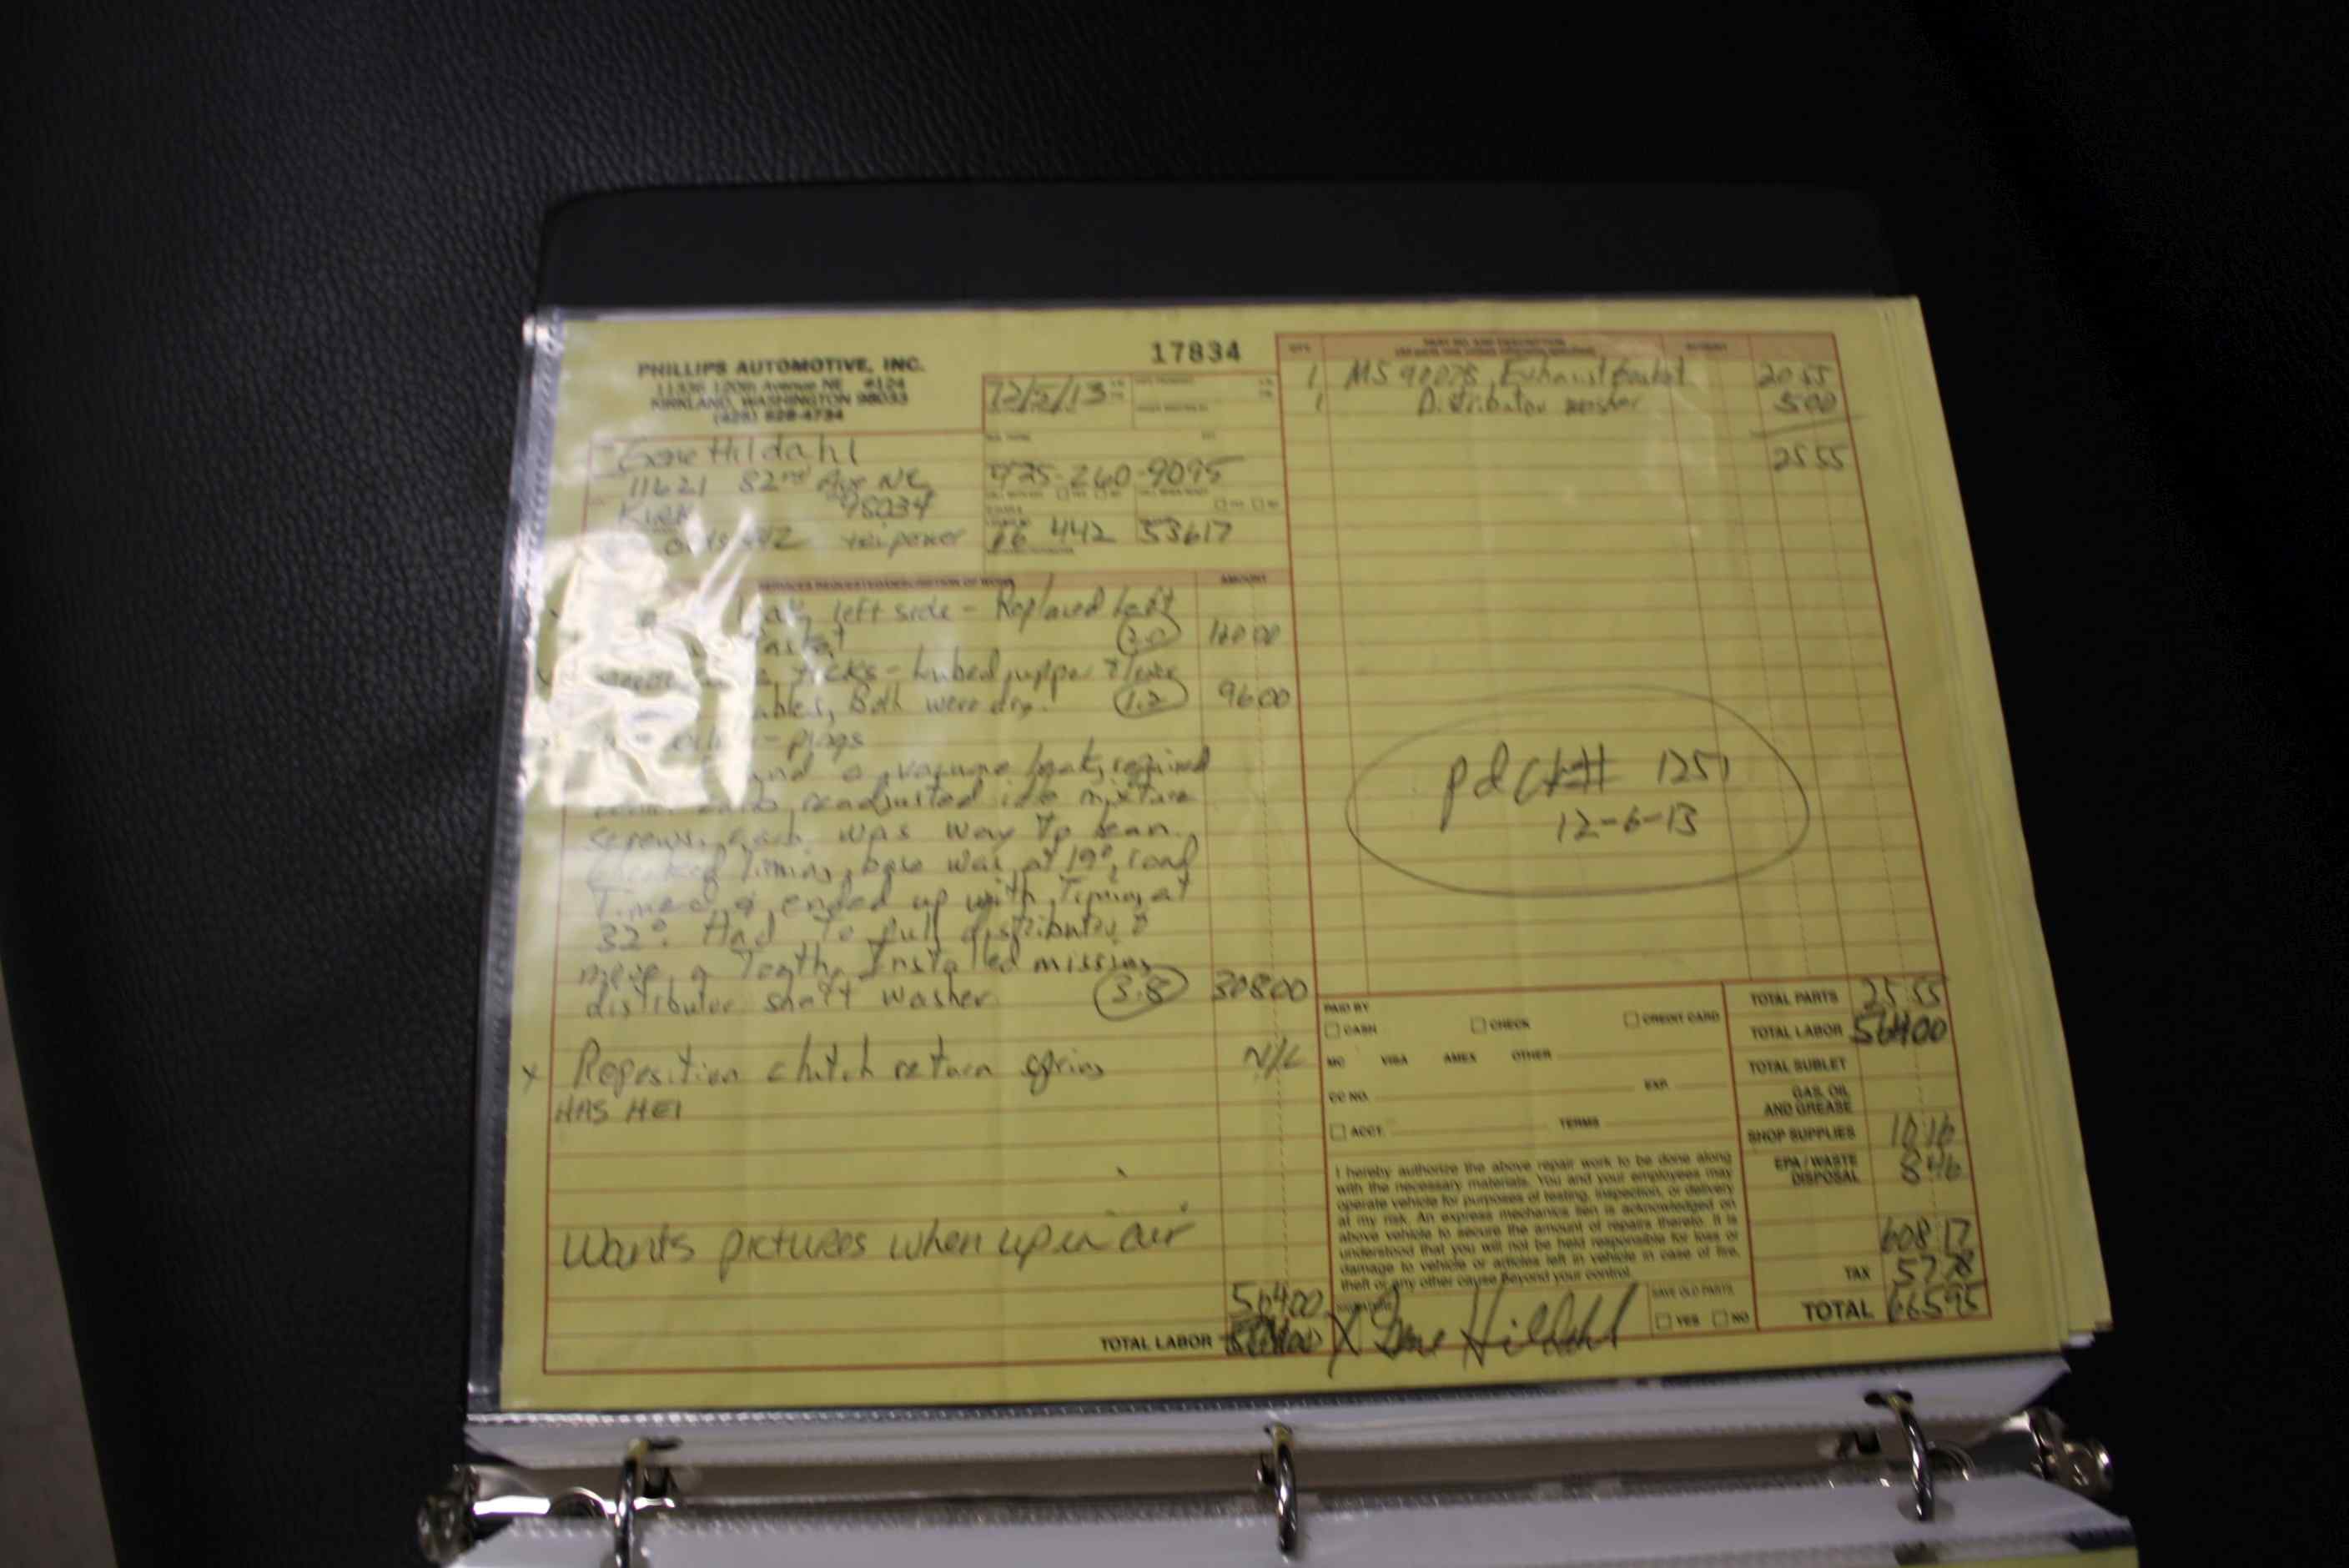 17834
PHILLIPS AUTOMOTIVE, INC.
11336 120th Avenue NE #124
KIRKLAND, WASHINGTON 98033
(425) 828-4734
12/5/13
Gene Hildahl
11621 82nd Ave NE
KIRK 98034
925-260-9095
tri power
442 53617
SERVICES REQUESTED/DESCRIPTION OF WORK AMOUNT
leak, left side - Replaced Left
(2.0) 160 00
ticks - Lubed upper &
Both were dry. (1.2) 96 00
- plugs
a vacuume leak, repaired
readjusted idle mixture
screws, each was way to lean.
Checked timing, base was at 19°, road
Timed & ended up with Timing at
32°. Had To pull distributor &
move a Tooth. Installed missing
distributor shaft washer (3.8) 308 00
x Reposition clutch return spring N/C
HAS HEI
Wants pictures when up in air
564 00
TOTAL LABOR
1 MS 90028 Exhaust Gasket 20 55
1 Distributor washer 5 00
25 55
pd Ck# 1251
12-6-13
PAID BY
CASH CHECK CREDIT CARD
MC VISA AMEX OTHER
CC NO. EXP.
ACCT. TERMS
I hereby authorize the above repair work to be done along
with the necessary materials. You and your employees may
operate vehicle for purposes of testing, inspection, or delivery
at my risk. An express mechanics lien is acknowledged on
above vehicle to secure the amount of repairs thereto. It is
understood that you will not be held responsible for loss or
damage to vehicle or articles left in vehicle in case of fire,
theft or any other cause beyond your control.
SIGNATURE
X Gene Hildahl
SAVE OLD PARTS
YES NO
TOTAL PARTS 25 55
TOTAL LABOR 564 00
TOTAL SUBLET
GAS, OIL
AND GREASE
SHOP SUPPLIES 10 16
EPA / WASTE
DISPOSAL 8 46
608 17
TAX 57 78
TOTAL 665 95